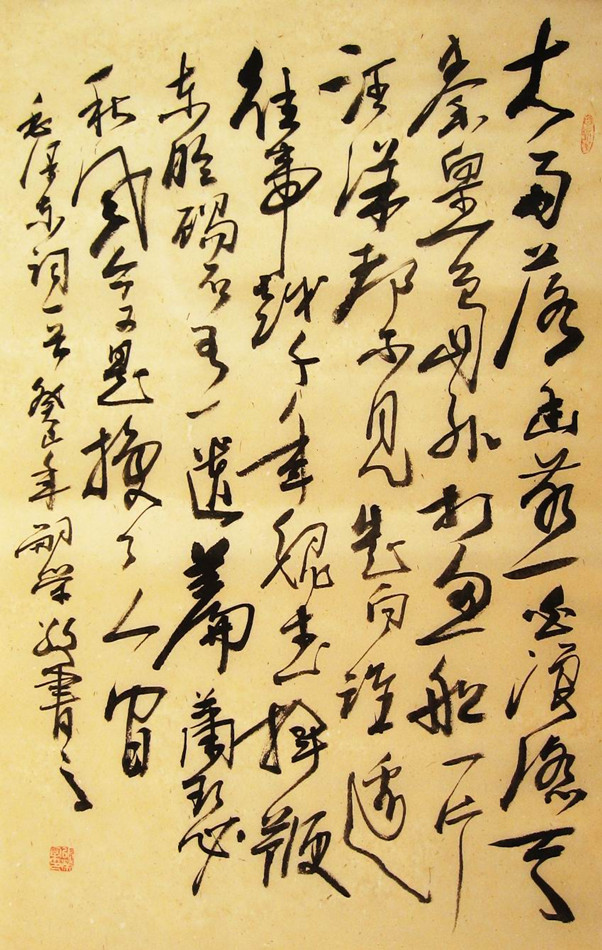 大雨落幽燕一白浪滔天
秦皇一岛外打鱼船一片
汪洋都不見知向誰邊
往事越千年魏武揮鞭
东临碣石有一遺篇蕭瑟
秋风今又是換了人间
毛泽东词一首癸巳年嗣荣敬書之